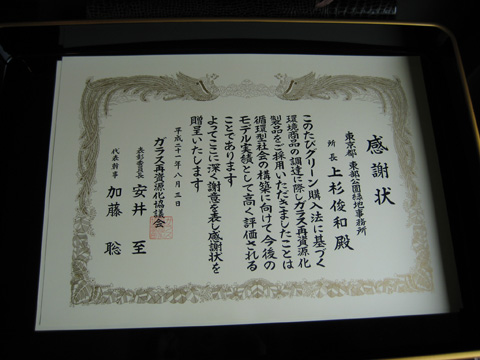 感謝状
東京都 東部公園緑地事務所
所長 上杉俊和 殿
このたびグリーン購入法に基づく
環境商品の調達に際しガラス再資源化
製品をご採用いただきましたことは
循環型社会の構築に向けて今後の
モデル実績として高く評価される
ことであります
よってここに深く謝意を表し感謝状を
贈呈いたします
平成二十一年八月三日
ガラス再資源化協議会
表彰委員長 安井 至
代表幹事 加藤 聡